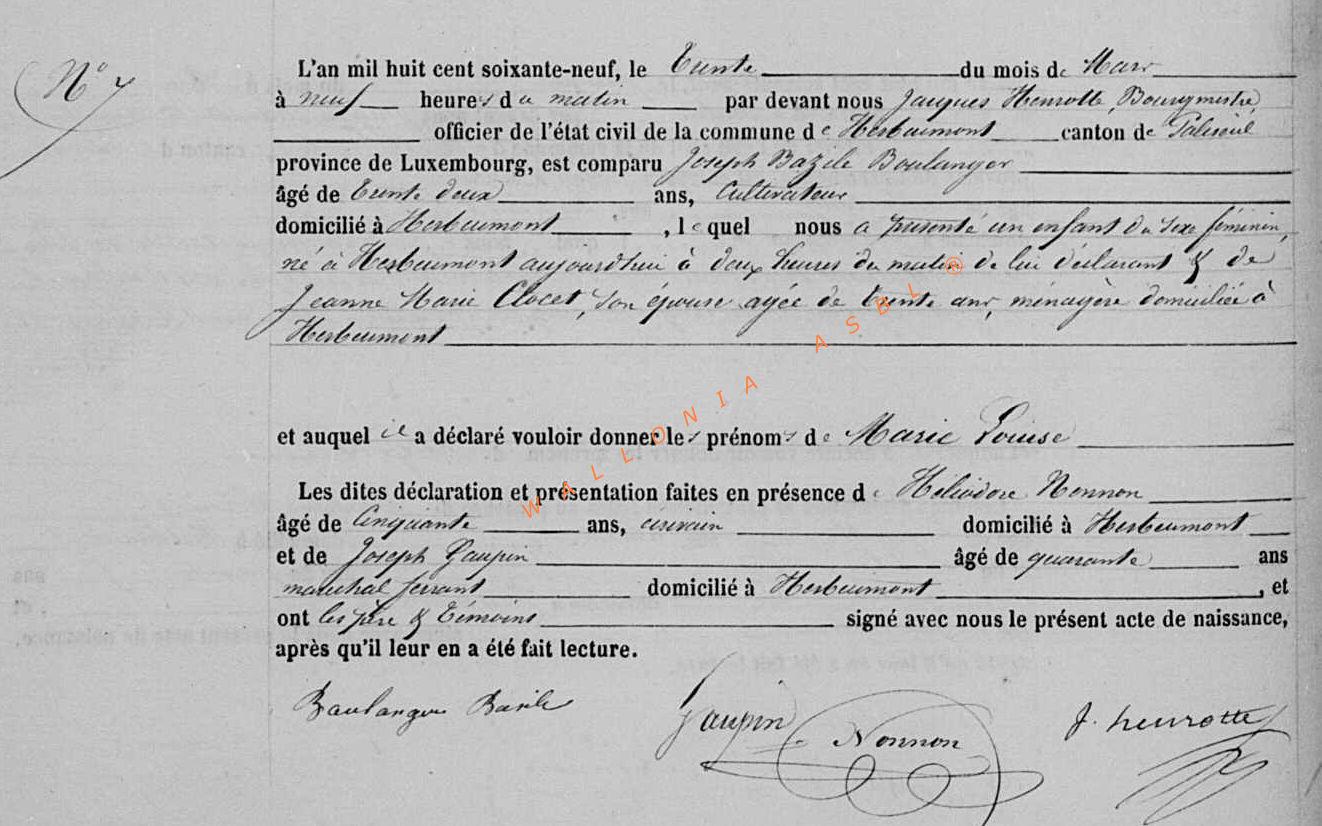 N° 7
L'an mil huit cent soixante-neuf, le Trente du mois de Mars
à neuf heures du matin par devant nous Jacques Henrotte, Bourgmestre,
officier de l'état civil de la commune de Herbeumont canton de Paliseul
province de Luxembourg, est comparu Joseph Bazile Boulanger
âgé de trente deux ans, Cultivateur
domicilié à Herbeumont, lequel nous a présenté un enfant du sexe féminin,
né à Herbeumont aujourd'hui à deux heures du matin de lui déclarant & de
Jeanne Marie Clocet, son épouse agée de trente ans, ménagère domiciliée à
Herbeumont
WALLONIA ASBL ®
et auquel il a déclaré vouloir donner les prénoms de Marie Louise
Les dites déclaration et présentation faites en présence de Héliodore Nonnon
âgé de Cinquante ans, écrivain domicilié à Herbeumont
et de Joseph Jaupin âgé de quarante ans
maréchal ferrant domicilié à Herbeumont, et
ont les père & Témoins signé avec nous le présent acte de naissance,
après qu'il leur en a été fait lecture.
Boulanger Basile Jaupin Nonnon J. henrotte